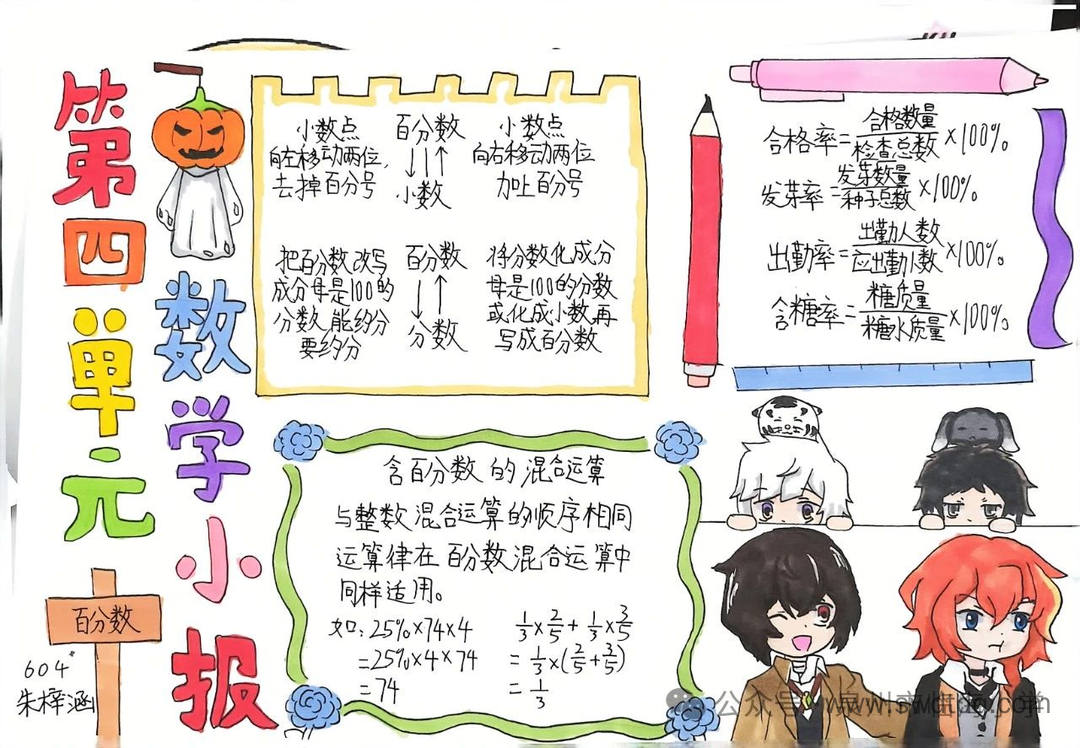 第四单元
数学小报
百分数
604
朱梓涵
小数点
向左移动两位,
去掉百分号
百分数
↓↓↑
小数
小数点
向右移动两位
加上百分号
把百分数改写
成分母是100的
分数,能约分
要约分
百分数
↓↑
分数
将分数化成分
母是100的分数
或化成小数,再
写成百分数
合格率=合格数量/检查总数×100%
发芽率=发芽数量/种子总数×100%
出勤率=出勤人数/应出勤人数×100%
含糖率=糖质量/糖水质量×100%
含百分数的混合运算
与整数混合运算的顺序相同
运算律在百分数混合运算中
同样适用。
如:25%×74×4
=25%×4×74
=74
1/3×2/5+1/3×3/5
=1/3×(2/5+3/5)
=1/3
公众号